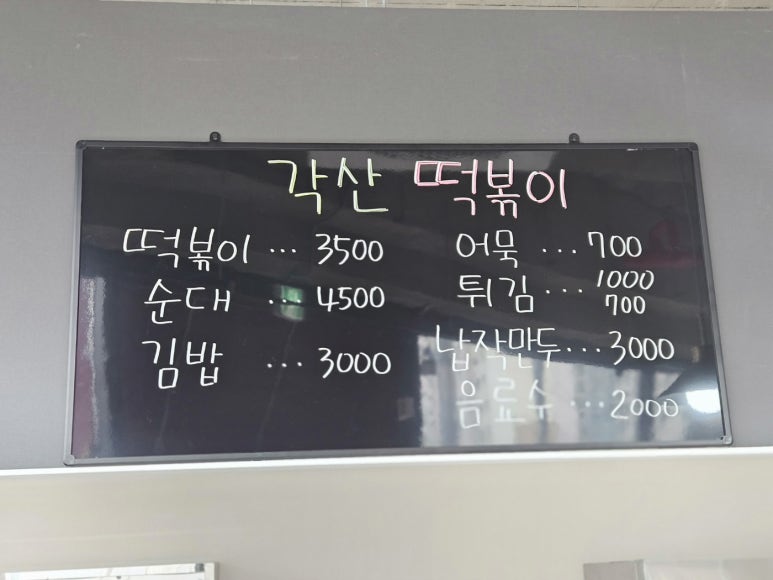 각산 떡볶이
떡볶이 ... 3500
순대 ... 4500
김밥 ... 3000
어묵 ... 700
튀김 ... 1000
700
납작만두 ... 3000
음료수 ... 2000